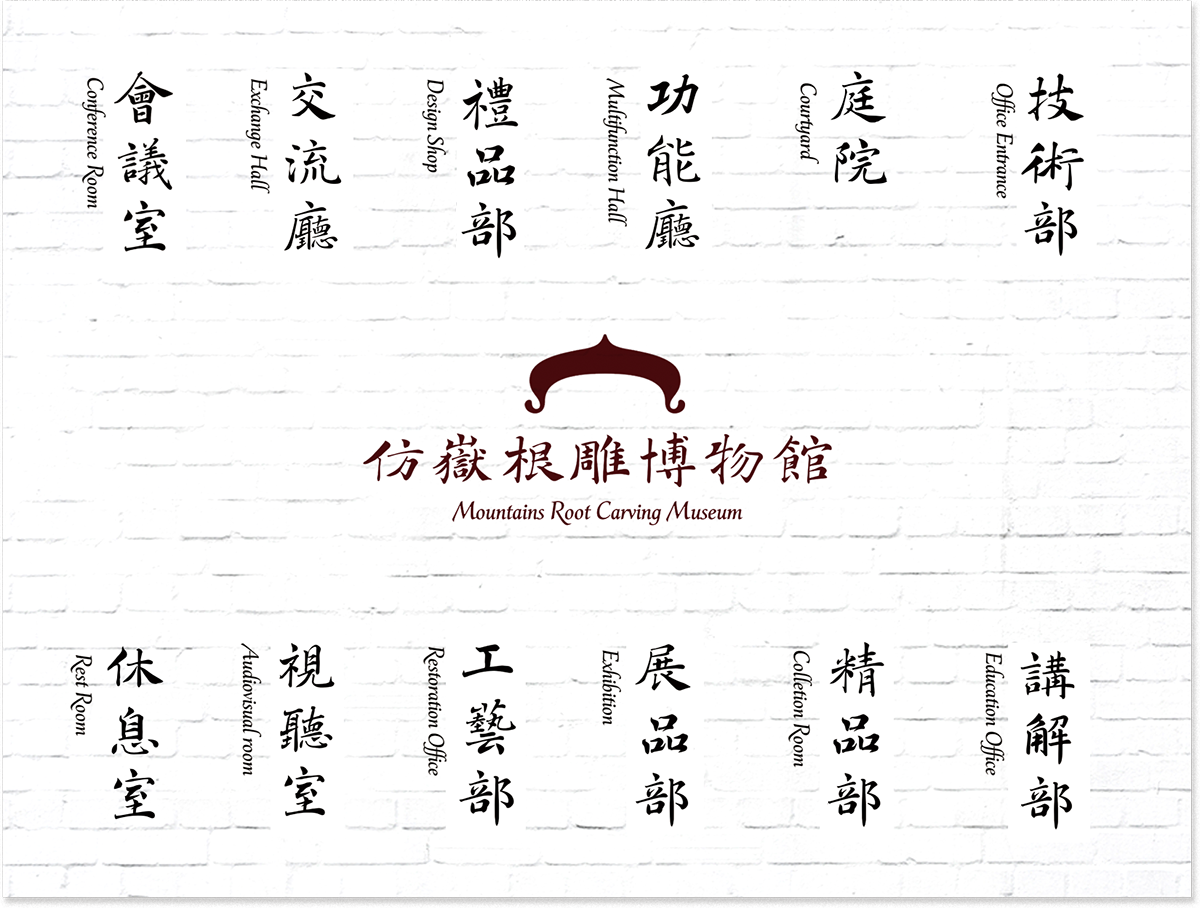 會議室
Conference Room
交流廳
Exchange Hall
禮品部
Design Shop
功能廳
Multifunction Hall
庭院
Courtyard
技術部
Office Entrance
仿嶽根雕博物館
Mountains Root Carving Museum
休息室
Rest Room
視聽室
Audiovisual room
工藝部
Restoration Office
展品部
Exhibition
精品部
Colletion Room
講解部
Education Office